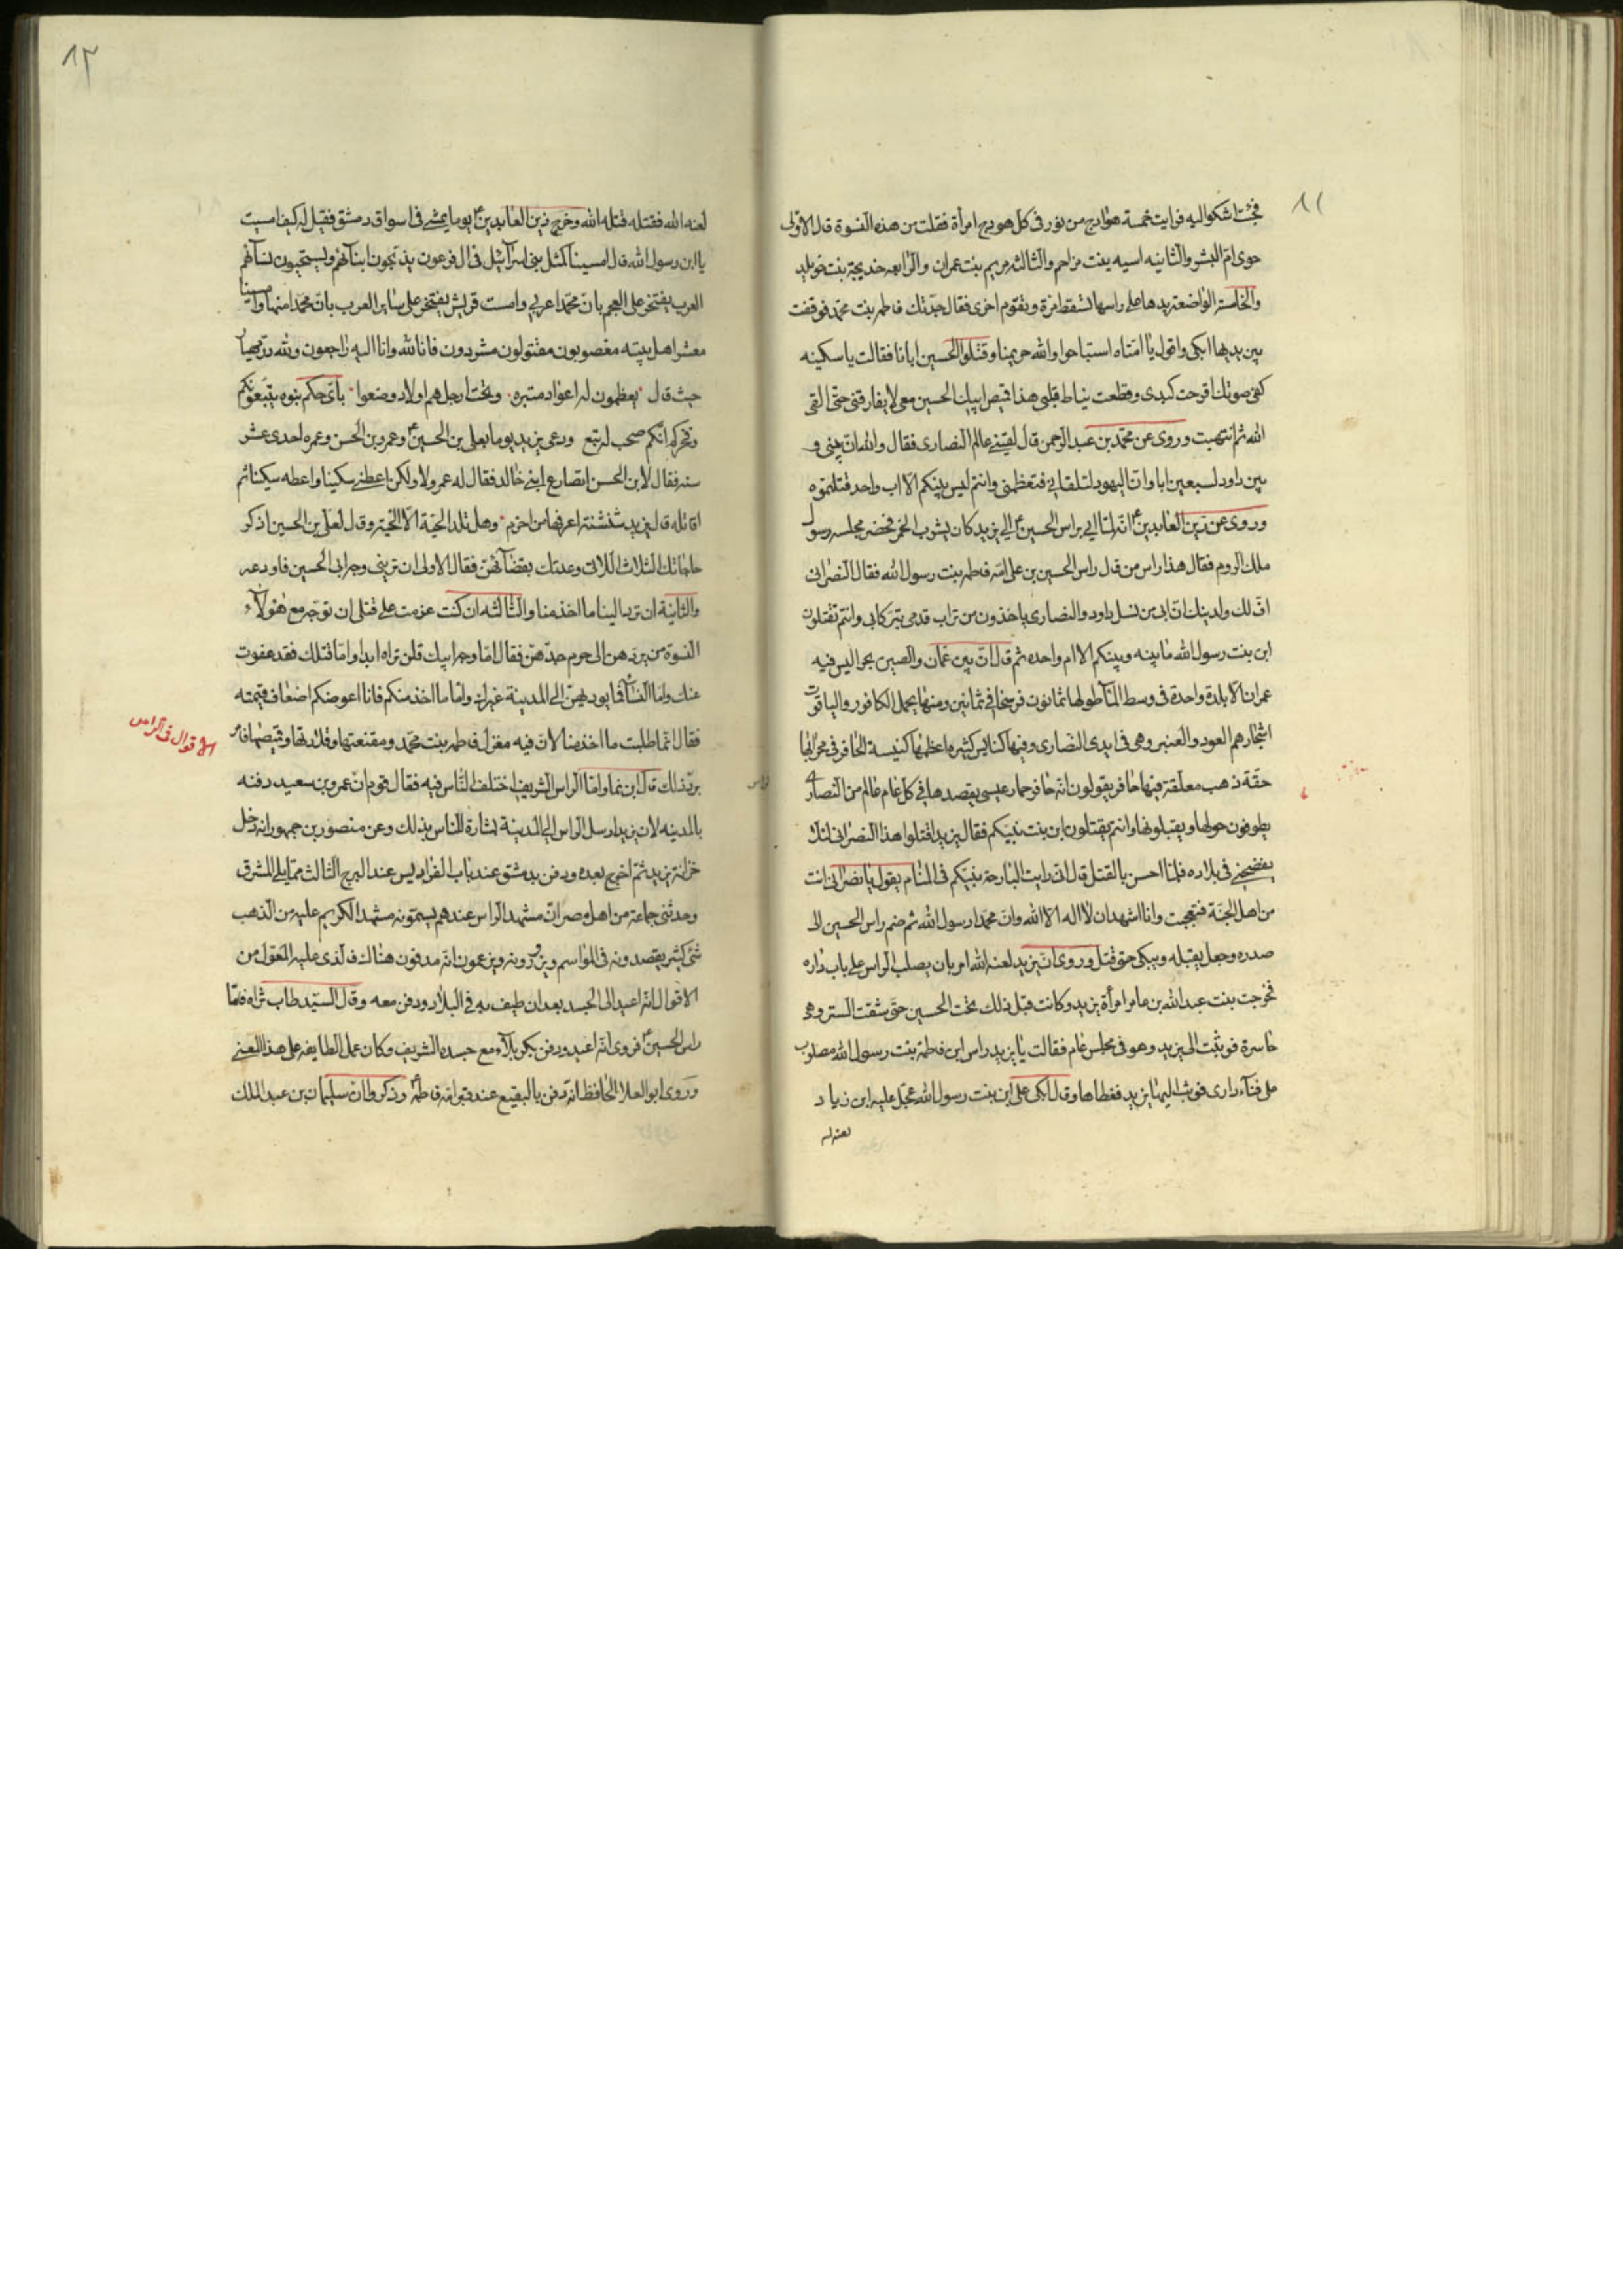 ١١
فجئت اشكو اليه فرايت خمسة هوادج من نور فى كل هودج امرأة فقلت من هذه النسوة قال الاولى
حوى امّ البشر والثانيه اسيه بنت مزاحم والثالثه مريم بنت عمران والرّابعه خديجة بنت خويلد
والخامسة الواضعة يدها على راسها تسقط مرة وتقوم اخرى فقال جدّتك فاطمه بنت محمّد فوقفت
بين يديها ابكى واقول يا امتاه استباحوا والله حريمنا وقتلوا الحسين ابانا فقالت يا سكينه
كفى صوتك اقرحت كبدى وقطعت نياط قلبى هذا قميص ابيك الحسين معى لا يفارقنى حتى القى
الله ثم انتهبت وروى عن محمّد بن عبد الرحمن قال لقينى عالم النصارى فقال والله ان بينى و
بين داود لسبعين ابا وانّ اليهود لتلقانى فتعظمنى وانتم ليس بينكم الا اب واحد قتلتموه
وروى عن زين العابدين انّه لمّا اتى براس الحسين الى يزيد كان يشرب الخمر فحضر مجلسه رسول
ملك الروم فقال هذا راس من قال راس الحسين بن على امّه فاطمه بنت رسول الله فقال النصرانى
افّ لك ولدينك انّ ابى من نسل داود والنصارى ياخذون من تراب قدمى تبرّكا بى وانتم تقتلون
ابن بنت رسول الله ما بينه وبينكم الا ام واحده ثم قال انّ بين عمان والصين بحرا ليس فيه
عمران الا بلدة واحدة فى وسط المآء طولها ثمانون فرسخا فى ثمانين ومنها يحمل الكافور والياقوت
اشجارهم العود والعنبر وهى فى ايدى النصارى وفيها كنايس كثيره اعظمها كنيسة الحافر فى محرابها
حقّة ذهب معلّقة فيها حافر يقولون انّه حافر حمار عيسى يقصدها فى كلّ عام عالم من النصارى
يطوفون حولها ويقبلونها وانتم تقتلون ابن بنت نبيكم فقال يزيد اقتلوا هذا النصرانى لئلا
يفضحنى فى بلاده فلمّا احسن بالقتل قال انّى رايت البارحة نبيّكم فى المنام يقول يا نصرانى انت
من اهل الجنّة فتعجبت وانا اشهد ان لا اله الا الله وانّ محمّدا رسول الله ثم ضم راس الحسين الى
صدره وجعل يقبله ويبكى حتى قتل وروى انّ يزيد لعنه الله امر بان يصلب الراس على باب داره
فخرجت بنت عبد الله بن عامر امرأة يزيد وكانت قبل ذلك تحت الحسين حتى شقت الستر وهى
حاسرة فوثبت الى يزيد وهو فى مجلس عام فقالت يا يزيد راس ابن فاطمة بنت رسول الله مصلوب
على فنآء دارى فوثب اليها يزيد فغطاها وقال ابكى على ابن بنت رسول الله عجل عليه ابن زياد
لعنه الله
١٢
لعنه الله فقتله قتله الله وخرج زين العابدين يوما يمشى فى اسواق دمشق فقيل له كيف امسيت
يا ابن رسول الله قال امسينا كمثل بنى اسرآئيل فى ال فرعون يذبّحون ابنآئهم ويستحيون نسآئهم
العرب يفتخر على العجم بانّ محمّدا عربى وامست قريش يفتخر على ساير العرب بانّ محمّدا منها وامسينا
معشر اهل بيته مغصوبون مقتولون مشردون فانا لله وانا اليه راجعون ولله در مهيار
حيث قال يعظمون له اعواد منبره وتحت ارجلهم اولاده وضعوا باىّ حكم بنوه يتبعونكم
وفخركم انكم صحب له تبع ودعى يزيد يوما بعلى بن الحسين وعمرو بن الحسن وعمره احدى عشر
سنه فقال لابن الحسن اتصارع ابنى خالد فقال له عمرو لا ولكن اعطنى سكينا واعطه سكينا ثم
اقاتله قال يزيد شنشنة اعرفها من اخزم وهل تلد الحيّة الا الحيّة وقال لعلى بن الحسين اذكر
حاجاتك الثلاث اللاتى وعدتك بقضآئهنّ فقال الاولى ان ترينى وجه ابى الحسين فاودعه
والثانية ان ترد الينا ما اخذ منا والثالثه ان كنت عزمت على قتلى ان توجّه مع هؤلآء
النسوة من يردّهن الى حرم جدّهنّ فقال امّا وجه ابيك فلن تراه ابدا وامّا قتلك فقد عفوت
عنك وامّا النسآء فما يوديهنّ الى المدينة غيرك وامّا ما اخذ منكم فانا اعوضكم اضعاف قيمته
فقال انّما طلبت ما اخذ منا لانّ فيه مغزل فاطمه بنت محمّد ومقنعتها وقلادتها وقميصها فامر
الاقوال فى الراس
بردّ ذلك قال ابن نما وامّا الراس الشريف اختلف النّاس فيه فقال قوم انّ عمرو بن سعيد دفنه
بالمدينه لان يزيد ارسل الراس الى المدينة بشارة للناس بذلك وعن منصور بن جمهور انه دخل
خزانة يزيد ثم اخرج بعده ودفن بدمشق عند باب الفراديس عند البرج الثالث ممّا يلى المشرق
وحدثنى جماعة من اهل مصر انّ مشهد الراس عندهم يسمّونه مشهد الكريم عليه من الذهب
شئ كثير يقصدونه فى المواسم ويزورونه ويزعمون انّه مدفون هناك فالذى عليه المعوّل من
الاقوال انّه اعيد الى الجسد بعد ان طيف به فى البلاد ودفن معه وقال السيّد طاب ثراه فامّا
راس الحسين فروى انّه اعيد ودفن بكربلآء مع جسده الشريف وكان عمل الطايفه على هذا المعنى
وروى ابو العلا الحافظ انّه دفن بالبقيع عند قبر امّه فاطمه وذكروا ان سليمان بن عبد الملك